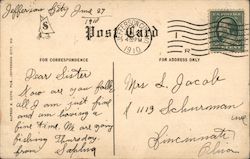 Jefferson City June 27
1910
Post Card
1910
FOR CORRESPONDENCE
FOR ADDRESS ONLY
Dear Sister
How are you folks
all I am just fine
and am having a
fine time. We are going
fishing Thursday
from
Mrs L. Jacob
# 1119 Schurman
Cincinnati
Ohio